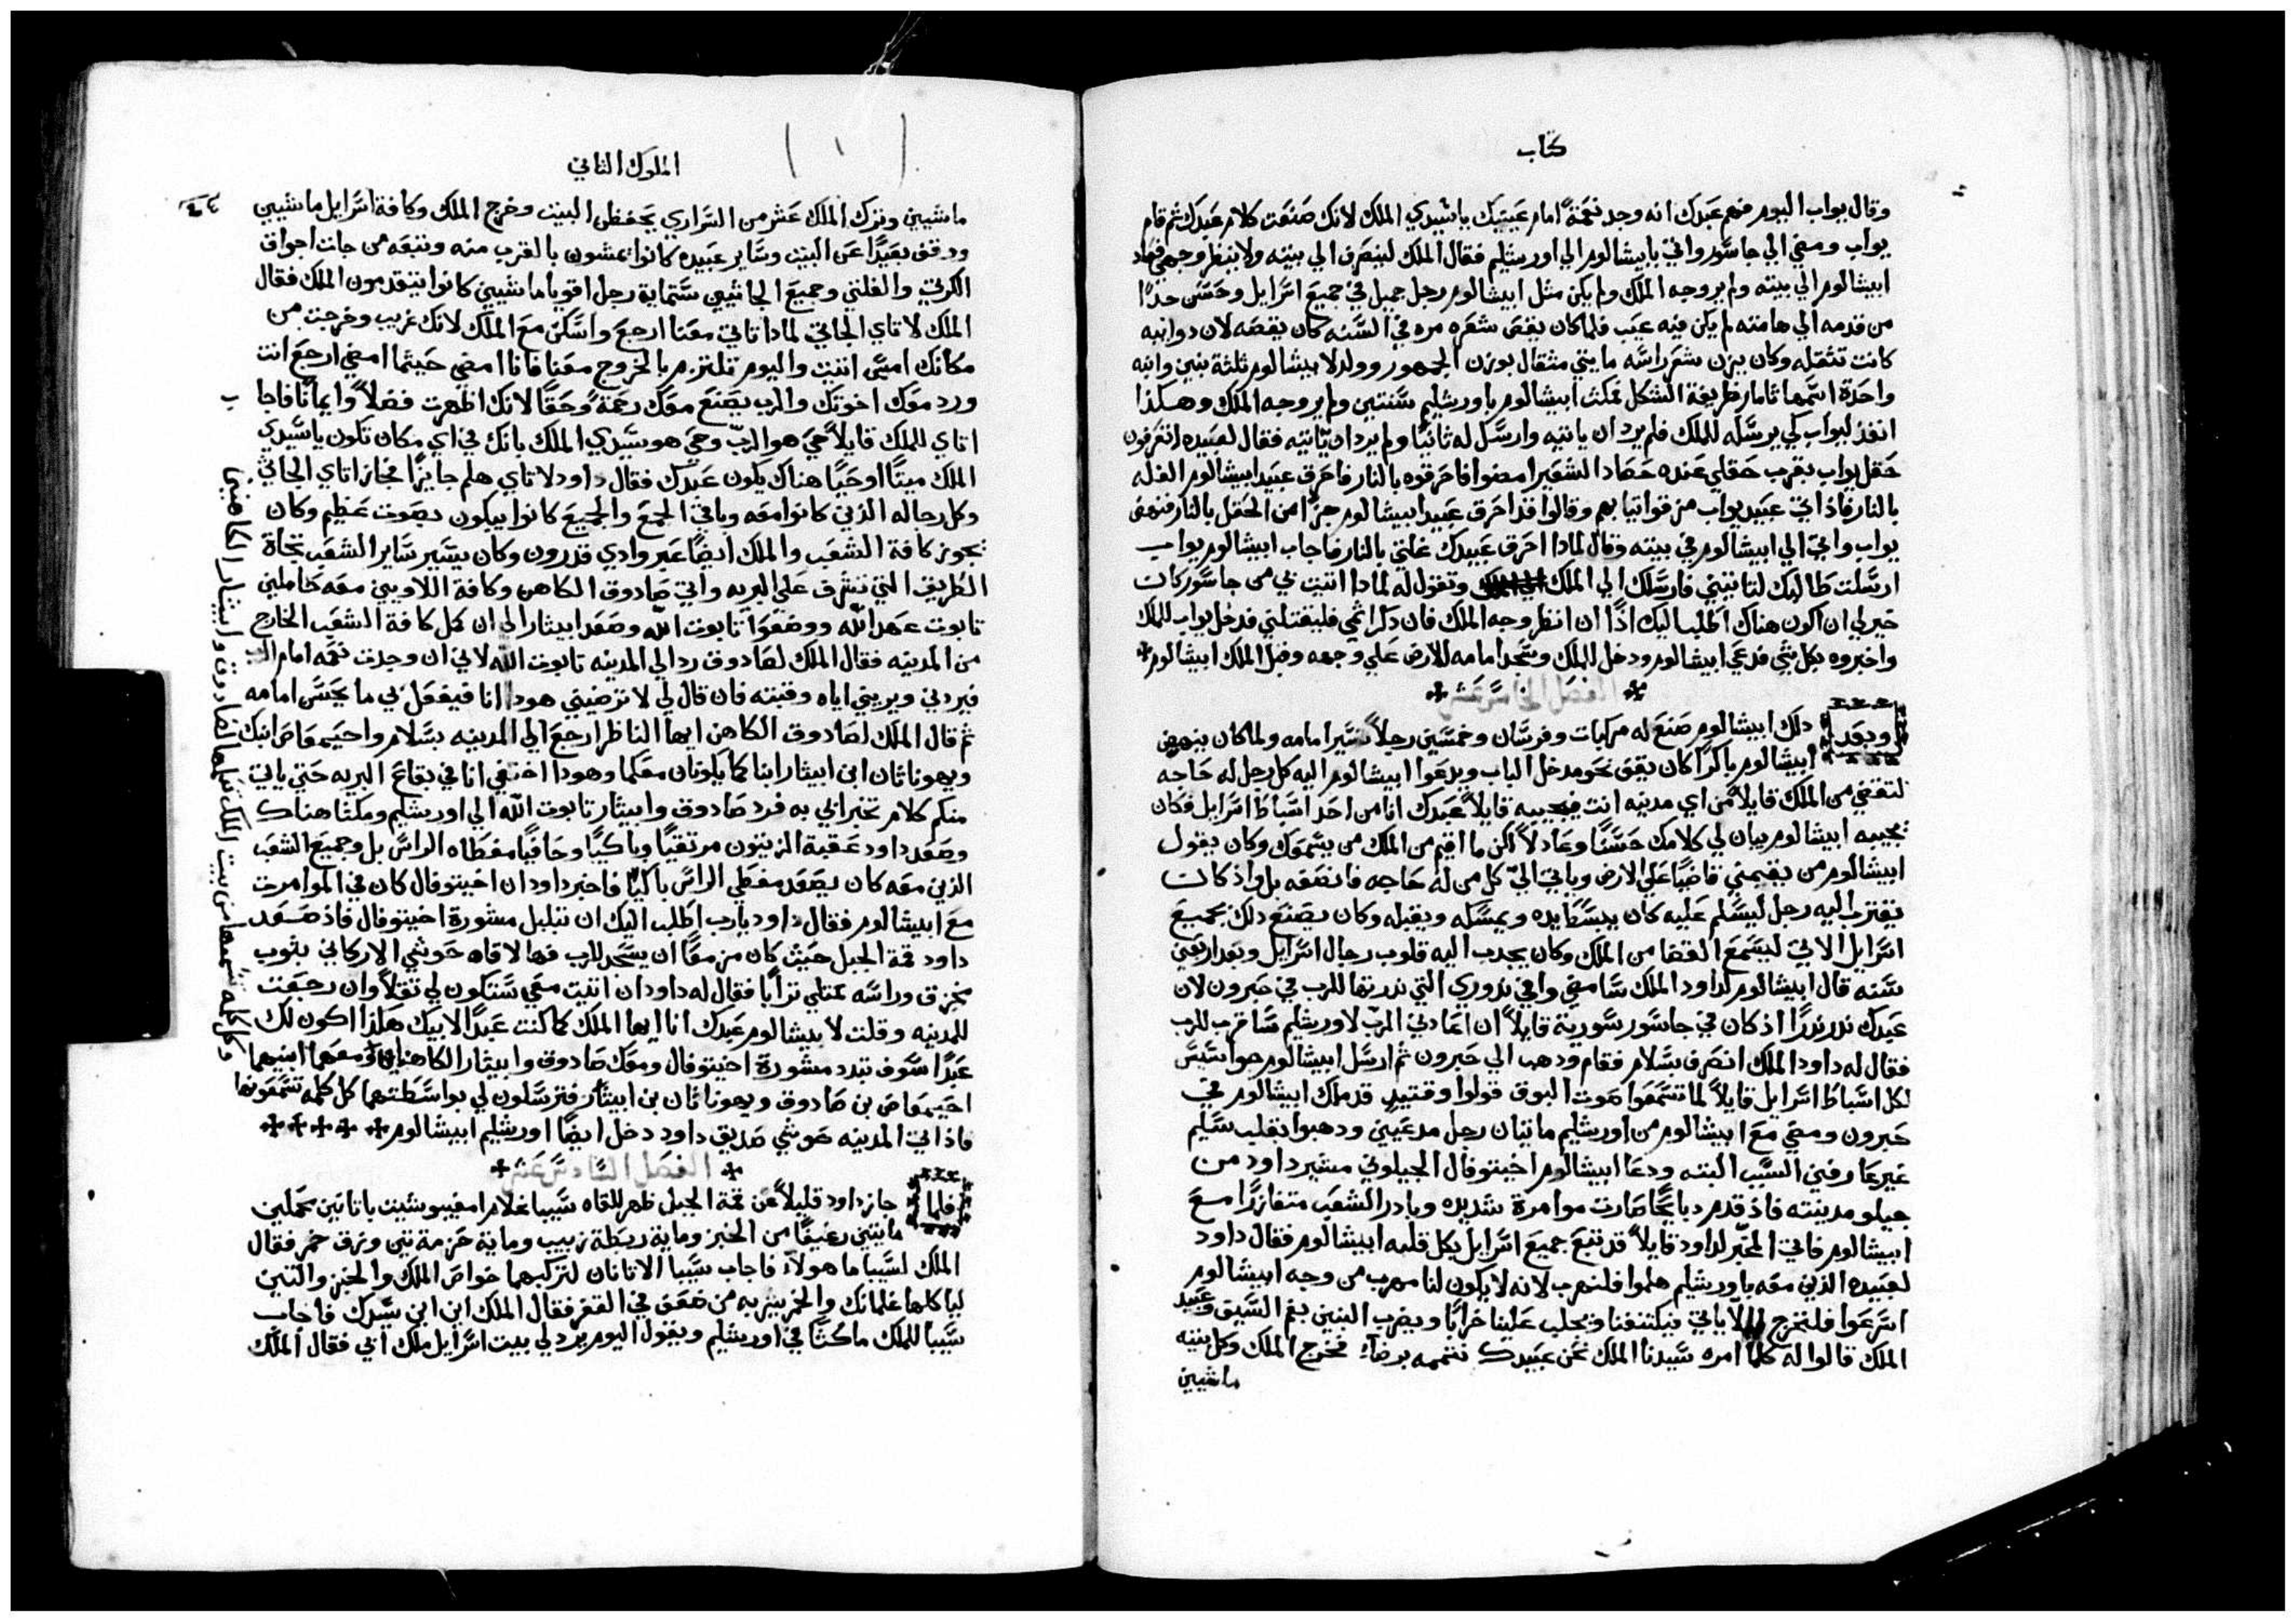 كتاب
وقال يواب اليوم فهم عبدك انه وجد نعمةً امام عينيك ياسيدي الملك لانك صنعت كلام عبدك ثم قام
يواب ومضي الي جاسور واتي بابيشالوم الي اورشليم فقال الملك لينصرف الي بيته ولا ينظر وجهي فعاد
ابيشالوم الي بيته ولم ير وجه الملك ولم يكن مثل ابيشالوم رجل جميل في جميع اسرايل وحسن جدًا
من قدمه الي هامته لم يكن فيه عيب فلما كان يقص شعره مره في السنه كان يقصه لان دوايبه
كانت تثقله وكان يزن شعر راسه مايتي مثقال بوزن الجمهور وولد لابيشالوم ثلثة بنين وابنه
واحدة اسمها ثامار ظريفة الشكل فمكث ابيشالوم باورشليم سنتين ولم ير وجه الملك وهكذا
انفذ ليواب كي يرسله للملك فلم يرد ان ياتيه وارسل له ثانيًا ولم يرد ان ياتيه فقال لعبيده اتعرفون
حقل يواب بقرب حقلي عنده حصاد الشعير امضوا فاحرقوه بالنار فاحرق عبيد ابيشالوم الغله
بالنار فاذ اتي عبيد يواب مزقوا ثيابهم وقالوا قد احرق عبيد ابيشالوم جزًا من الحقل بالنار فنهض
يواب واتي الي ابيشالوم في بيته وقال لماذا احرق عبيدك غلتي بالنار فاجاب ابيشالوم يواب
ارسلت طالبك لتاتيني فارسلك الي الملك وتقول له لماذا اتيت بي من جاسور كان
خير لي ان اكون هناك اطلب اليك اذًا ان انظر وجه الملك فان ذكر اثمي فليقتلني فدخل يواب للملك
واخبروه بكل شي فدعي ابيشالوم ودخل الملك وسجد امامه للارض علي وجهه وقبل الملك ابيشالوم
الفصل الخامس عشر
وبعد ذلك ابيشالوم صنع له مركبات وفرسان وخمسين رجلاً تسير امامه ولما كان ينهض
ابيشالوم باكرًا كان يقف نحو مدخل الباب ويدعوا ابيشالوم اليه كل رجل له حاجه
لتقتضي من الملك قايلاً من اي مدينه انت فيجيبه قايلاً عبدك انا من احد اسباط اسرايل فكان
يجيبه ابيشالوم يبان لي كلامك حسنًا وعادلاً لكن ما اقيم من الملك من يسمعك وكان يقول
ابيشالوم من يقيمني قاضيًا علي الارض وياتي اليّ كل من له حاجه فانصفه بل واذ كان
يقترب اليه رجل ليسلم عليه كان يبسط يده ويمسكه ويقبله وكان يصنع ذلك بجميع
اسرايل الاتي ليسمع القضا من الملك وكان يجدب اليه قلوب رجال اسرايل وبعد اربعين
سنه قال ابيشالوم لداود الملك سامضي واوفي نذوري التي نذرتها للرب في حبرون لان
عبدك نذر نذرًا اذ كان في جاسور سورية قايلاً ان اعادني الرب لاورشليم ساقرب للرب
فقال له داود الملك انصرف بسلام فقام ودهب الي حبرون ثم ارسل ابيشالوم جواسيس
لكل اسباط اسرايل قايلاً لما تسمعوا صوت البوق قولوا وقتيد قد ملك ابيشالوم في
حبرون ومضي مع ابيشالوم من اورشليم مايتان رجل مدعيين ودهبوا بقلب سليم
غير عارفين السبب البته ودعا ابيشالوم اخيتوفال الجيلوني مشير داود من
جيلو مدينته فاذ قدم دبايحًا صارت موامرة شديده وبادر الشعب متفازرًا مع
ابيشالوم فاتي المخبر لداود قايلاً قد تبع جميع اسرايل بكل قلبه ابيشالوم فقال داود
لعبيده الذين معه باورشليم هلموا فلنهرب لانه لا يكون لنا مهرب من وجه ابيشالوم
اسرعوا فلنخرج ليلا ياتي فيكتنفنا ويجلب علينا خرابًا ويضرب البنين بفم السيف وعبيد
الملك قالوا له كلما امره سيدنا الملك نحن عبيدك نتممه برضاء فخرج الملك وكل بيته
ماشيين
الملوك الثاني
ماشيين وترك الملك عشر من السراري يحفظن البيت وخرج الملك وكافة اسرايل ماشيين
ووقف بعيدًا عن البيت وساير عبيده كانوا يمشون بالقرب منه وتتبعه من جانب اجواق
الكرتي والفلتي وجميع الجاثيين ستماية رجل اقويا ماشيين كانوا يتقدمون الملك فقال
الملك لاتاي الجاتي لماذا تاتي معنا ارجع واسكن مع الملك لانك غريب وخرجت من
مكانك امس اتيت واليوم تلتزم بالخروج معنا فانا امضي حيثما امضي ارجع انت
ورد معك اخوتك والرب يصنع معك رحمةً وحقًا لانك اظهرت فضلاً وايمانًا فاجا
اتاي للملك قايلاً حي هو الربّ وحي هو سيدي الملك بانك في اي مكان تكون ياسيدي
الملك ميتًا او حيًا هناك يكون عبدك فقال داود لاتاي هلم جايزًا فجاز اتاي الجاتي
وكل رجاله الذين كانوا معه وباقي الجمع والجميع كانوا يبكون بصوت عظيم وكان
تجوز كافة الشعب والملك ايضًا عبر وادي قدرون وكان يسير ساير الشعب تجاه
الطريق التي تشرف علي البريه واتي صادوق الكاهن وكافة اللاويين معه حاملين
تابوت عهد الله ووضعوا تابوت الله وصعد ابيثار الي ان كمل كافة الشعب الخارج
من المدينه فقال الملك لصادوق رد الي المدينه تابوت الله لاني ان وجدت نعمه امام الرب
فيردني ويريني اياه وقبته فان قال لي لا ترضيني هودا انا فيفعل بي ما يحسن امامه
ثم قال الملك لصادوق الكاهن ايها الناظر ارجع الي المدينه بسلام واحيمعاص ابنك
ويهوناثان ابن ابيثار ابناكما يكونان معكما وهودا اختفي انا في بقاع البريه حتي ياتي
منكم كلام تخبراني به فرد صادوق وابيثار تابوت الله الي اورشليم ومكثا هناك
وصعد داود عقبة الزيتون مرتقيًا وباكيًا وحافيًا مغطاه الراس بل وجميع الشعب
الذين معه كان يصعد مغطي الراس باكيًا فاخبر داود ان اخيتوفال كان في الموامرت
مع ابيشالوم فقال داود يارب اطلب اليك ان تبلبل مشورة اخيتوفال فاذ صعد
داود قمة الجبل حيث كان مزمعًا ان يسجد للرب فها لاقاه حوشي الاركاني بثوب
مخزق وراسه ممتلي ترابًا فقال له داود ان اتيت معي ستكون لي ثقلاً وان رجعت
للمدينه وقلت لابيشالوم عبدك انا ايها الملك كما كنت عبدًا لابيك هكذا اكون لك
عبدًا سوف تبدد مشورة اخيتوفال ومعك صادوق وابيثار الكاهنان ومعهما ابنيهما
احيمعاص بن صادوق ويهوناثان بن ابيثار فترسلون لي بواسطتهما كل كلمه تسمعونها
فاذ اتي المدينه حوشي صديق داود دخل ايضًا اورشليم ابيشالوم
الفصل السادس عشر
فلما جاز داود قليلاً عن قمة الجبل ظهر للقاه سيبا غلام امفيبوشيت باتانين محملين
مايتي رغيفًا من الخبز وماية ربطة زبيب وماية حزمة تين وزق خمر فقال
الملك لسيبا ما هولاء فاجاب سيبا الاتانان لتركبهما خواص الملك والخبز والتين
لياكلها غلمانك والخمر يشربه من ضعف في القفر فقال الملك اين ابن سيدك فاجاب
سيبا للملك ماكثًا في اورشليم ويقول اليوم يرد لي بيت اسرايل ملك ابي فقال الملك
وكل كلمه تسمعها من بيت الملك تبلغها لصادوق وابيثار الكاهنين